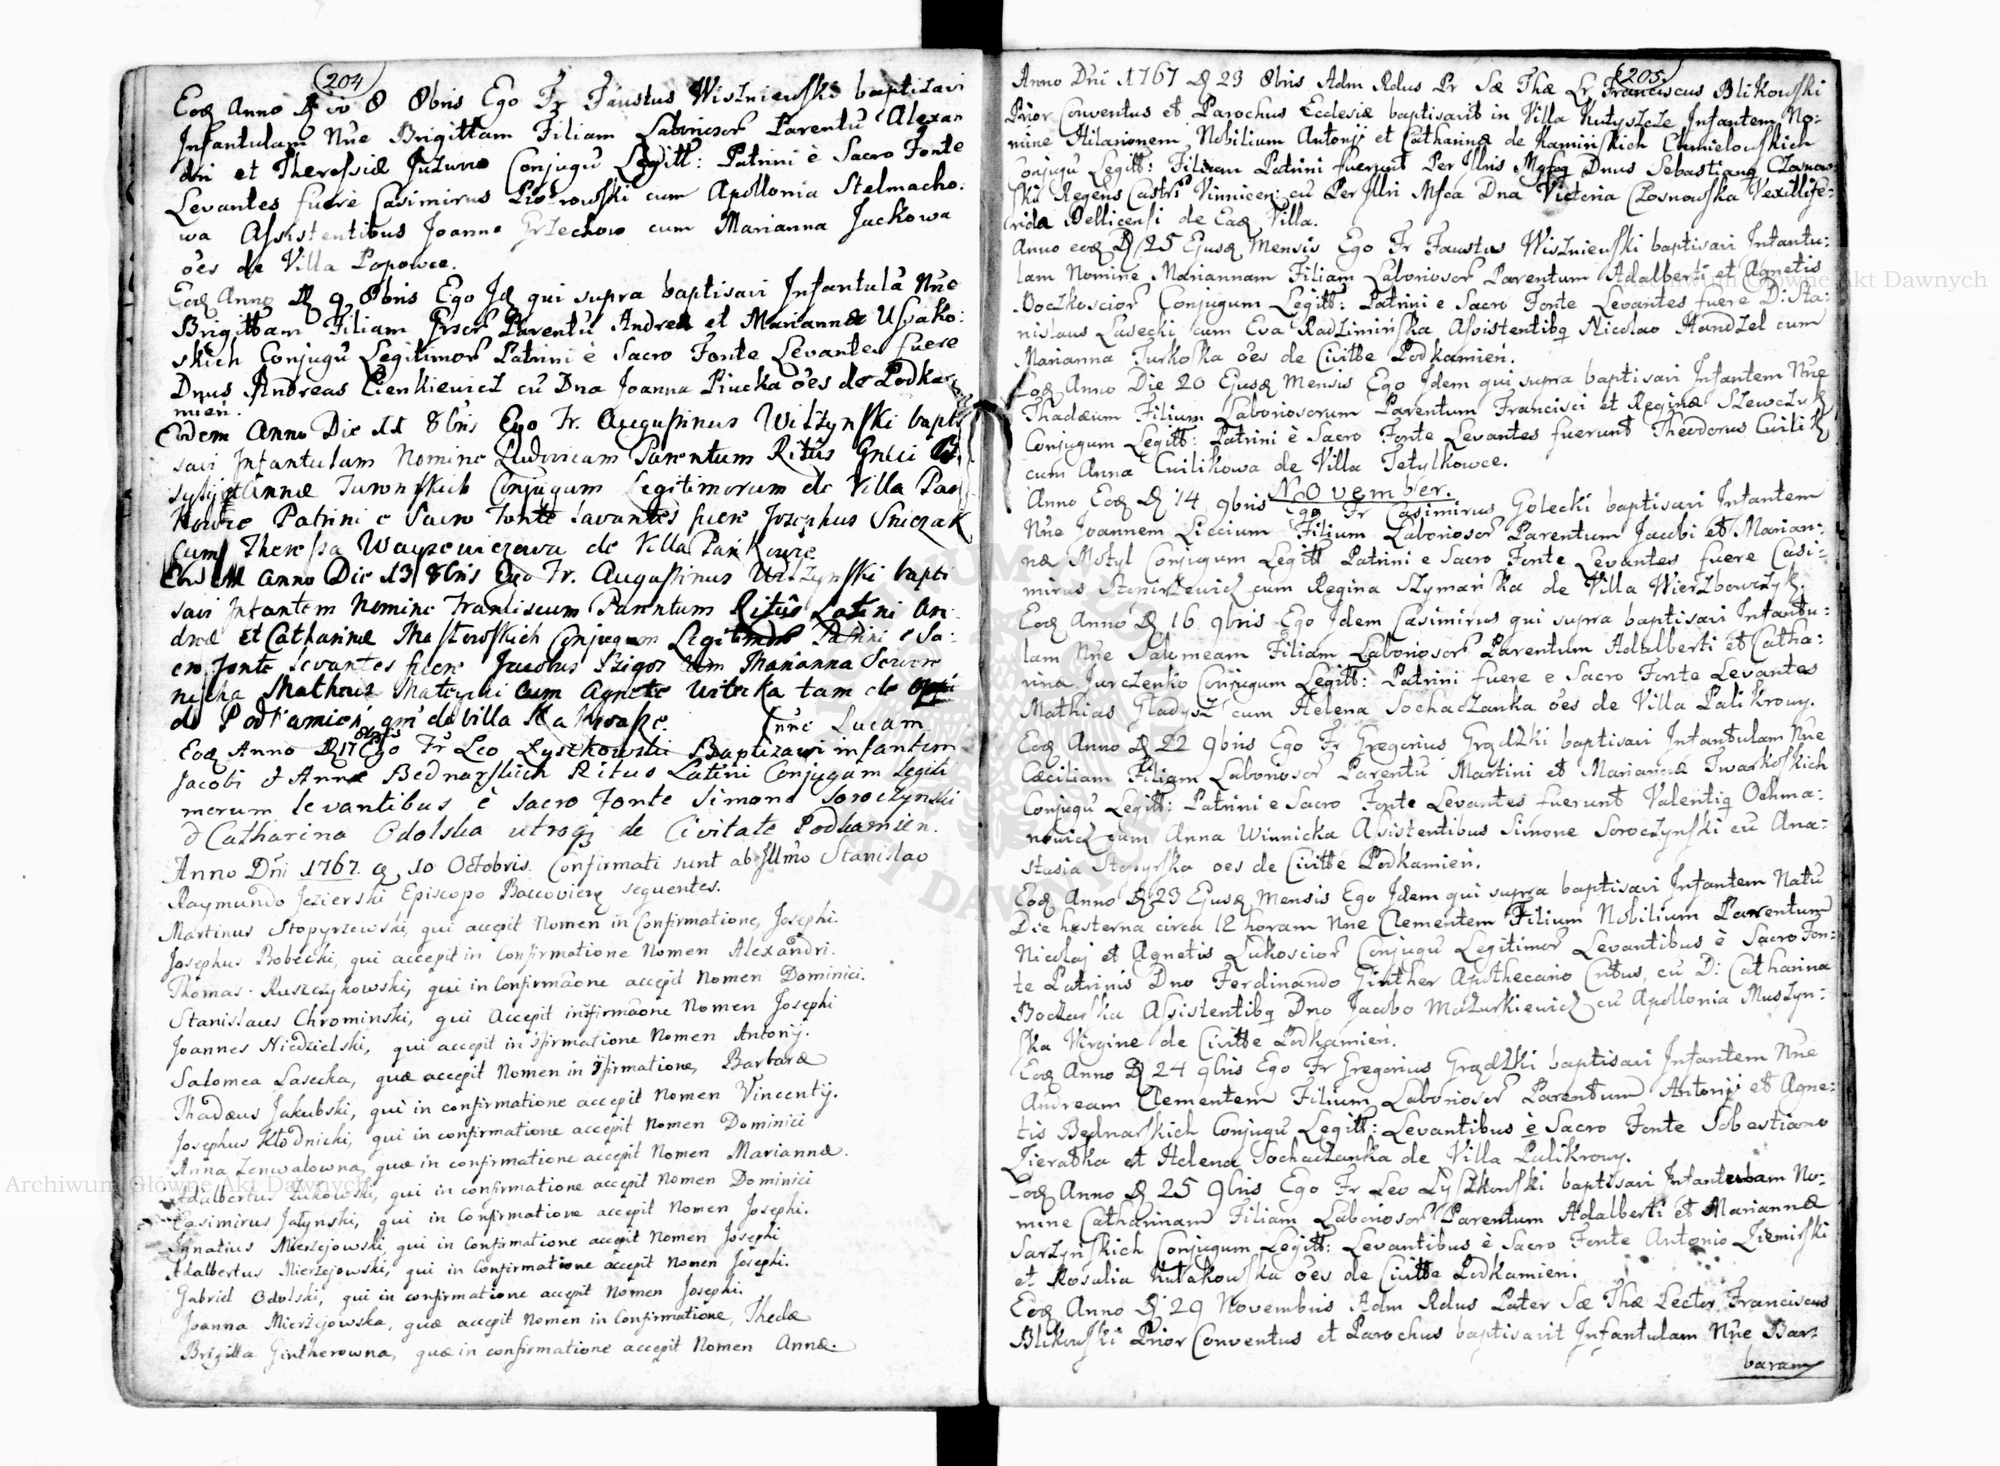 204
Eod Anno D 8 8bris Ego Fr Faustus Wiszniewski baptizavi
Infantulam Nne Brigittam Filiam Laboriosor Parentu Alexan
dri et Theressiæ Conjugu Legitt: Patrini è Sacro Fonte
Levantes fuere Casimirus Piotrowski cum Apollonia Stelmacho:
wa Assistentibus Joanne Grzechow cum Marianna Jackowa
oes de Villa Popowce.
Eod Anno D 9 8bris Ego Id qui supra baptisavi Infantulã Nne
Brigittam Filiam Parentũ Andreæ et Mariannæ Ussako:
skich Conjugũ Legitimor Patrini è Sacro Fonte Levantes fuere
Dnus Andreas Cienkiewicz cũ Dna Joanna Piucka oes de Podka
mień.
Eodem Anno Die 11 8bris Ego Fr. Augustinus Wilszynski bapti
savi Infantulam Nomine Ludovicam Parentum Ritûs Græci
et Annæ Turonskich Conjugum Legitimorum de Villa Pań
Kowce Patrini e Sacro Fonte Levantes fuere Josephus Sniczak
cum Theressa Wayzewiczowa de Villa Pańkowce
Eodem Anno Die 13 8bris Ego Fr. Augustinus Wilszynski bapti
savi Infantem Nomine Franciscum Parentum Ritûs Latini An
dreæ Et Catharinæ Mastowskich Conjugum Legitimor Patrini e Sa:
cro Fonte levantes fuere Jacobus Szigoz cum Marianna
Matheus cum Agnete tam de
de Podkamień, qm de Villa
Nne Lucam
Eod Anno D 17 8bris Ego Fr Leo Lyszkowski Baptizavi infantem
Jacobi & Annæ Bednarskich Ritus Latini Conjugum Legiti
morum levantibus è sacro Fonte Simone Soroczynski
& Catharina Odolska utroq de Civitate Podkamien.
Anno Dni 1767. D 10 Octobris Confirmati sunt ab Illmo Stanislao
Raymundo Jezierski Episcopo Baccovien sequentes.
Martinus Stopyrzewski, qui accepit Nomen in Confirmatione, Josephi.
Josephus Bobecki, qui accepit in Confirmatione Nomen Alexandri.
Thomas Ruszczykowski, qui in Confirmãone accepit Nomen Dominici.
Stanislaus Chrominski, qui Accepit in Confirmãone Nomen Josephi
Joannes Niedzielski, qui accepit in 9firmatione Nomen Antonij.
Salomea Lasecka, quæ accepit Nomen in 9firmatione, Barbaræ
Thadæus Jakubski, qui in confirmatione accepit Nomen Vincentij.
Josephus Kłodnicki, qui in confirmatione accepit Nomen Dominici
Anna Zenwalowna, quæ in confirmatione accepit Nomen Mariannæ.
Adalbertus Żukowski, qui in confirmatione accepit Nomen Dominici
Casimirus Jałynski, qui in Confirmatione accepit Nomen Josephi.
Ignatius Mierzejowski, qui in Confirmatione accepit Nomen Josephi
Adalbertus Mierzejowski, qui in Confirmatione accepit Nomen Josephi.
Gabriel Odolski, qui in confirmatione accepit Nomen Josephi.
Joanna Mierzejowska, quæ accepit Nomen in Confirmatione, Theclæ
Brigitta Gintherowna, quæ in confirmatione accepit Nomen Annæ.
205.
Anno Dni 1767 D 23 8bris Adm Rdus Pr Sæ Thæ Lr Franciscus Blikowski
Prior Conventus et Parochus Ecclesiæ baptisavit in Villa Kutyszcze Infantem No:
mine Hilarionem Nobilium Antonij et Catharinæ de Kamińskich Chmielowskich
Conjugũ Legitt: Filium Patrini fuerunt Per Illris Mgfcq Dnus Sebastianq Czosnow:
ski Regens Castri Vinnicen: cũ Per Illri Mfca Dna Victoria Czosnowska Vexillife:
rida Bellicensi de Ead Villa.
Anno eod D 25 Ejusd Mensis Ego Fr Faustus Wiszniewski baptisavi Infantu:
lam Nomine Mariannam Filiam Laboriosor Parentum Adalberti et Agnetis
Boczkoscior Conjugum Legitt: Patrini e Sacro Fonte Levantes fuere D: Sta:
nislaus Lasecki cum Eva Radzimińska Assistentibq Nicolao Handzel cum
Marianna Turkoska oes de Civitte Podkamień.
Eod Anno Die 20 Ejusd Mensis Ego Idem qui supra baptisavi Infantem Nne
Thadæum Filium Laboriosorum Parentum Francisci et Reginæ Szewczyk
Conjugum Legitt: Patrini è Sacro Fonte Levantes fuerunt Theodorus Cwilik
cum Anna Cwilikowa de Villa Tetylkowce.
November.
Anno Eod D 14 9bris Ego Fr Casimirus Golecki baptisavi Infantem
Nne Joannem Filium Laboriosor Parentum Jacobi et Marian:
næ Motyl Conjugum Legitt Patrini e Sacro Fonte Levantes fuere Casi:
mirus cum Regina Szymańska de Villa Wierzbowczyk.
Eod Anno D 16 9bris Ego Idem Casimirus qui supra baptisavi Infantu:
lam Nne Salomeam Filiam Laboriosor Parentum Adalberti et Catha:
rina Jurczenko Conjugum Legitt: Patrini fuere e Sacro Fonte Levantes
Mathias Gladysz cum Helena Sochaczanka oes de Villa Palikrowy.
Eod Anno D 22 9bris Ego Fr Gregorius Grądzki baptisavi Infantulam Nne
Cæciliam Filiam Laboriosor Parentũ Martini et Mariannæ Twarkoskich
Conjugũ Legitt: Patrini e Sacro Fonte Levantes fuerunt Valentiq Ochma:
nowicz cum Anna Winnicka Assistentibus Simone Soroczynski cũ Ana:
stasia Stopyrska oes de Civitte Podkamień.
Eod Anno D 23 Ejusd Mensis Ego Idem qui supra baptisavi Infantem Natũ
Die hesterna circa 12 horam Nne Clementem Filium Nobilium Parentum
Nicolaj et Agnetis Lukoscior Conjugũ Legitimor Levantibus è Sacro Fon:
te Patrinis Dno Ferdinando Ginther Apothecario Cntus, cũ D: Catharina
Boczarska Assistentibq Dno Jacobo Mazurkiewicz cũ Apollonia Muszyn:
ska Virgine de Civitte Podkamień.
Eod Anno D 24 9bris Ego Fr Gregorius Grądzki baptisavi Infantem Nne
Andream Clementem Filium Laboriosor Parentum Antonij et Agne:
tis Bednarskich Conjugũ Legitt: Levantibus è Sacro Fonte Sebestiano
Zieratka et Helena Sochaczanka de Villa Palikrowy.
Eod Anno D 25 9bris Ego Fr Leo Lyszkowski baptisavi Infantulam No:
mine Catharinam Filiam Laboriosor Parentum Adalberti et Mariannæ
Sarzynskich Conjugum Legitt: Levantibus è Sacro Fonte Antonio Ziemirski
et Rosalia Kutakowska oes de Civitte Podkamien.
Eod Anno D 29 Novembris Adm Rdus Pater Sæ Thæ Lector Franciscus
Blikowski Prior Conventus et Parochus baptisavit Infantulam Nne Bar:
baram